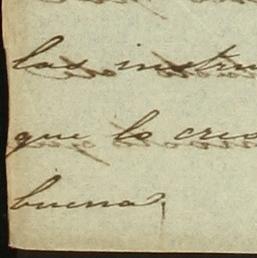 las instru
que lo cres
buena,